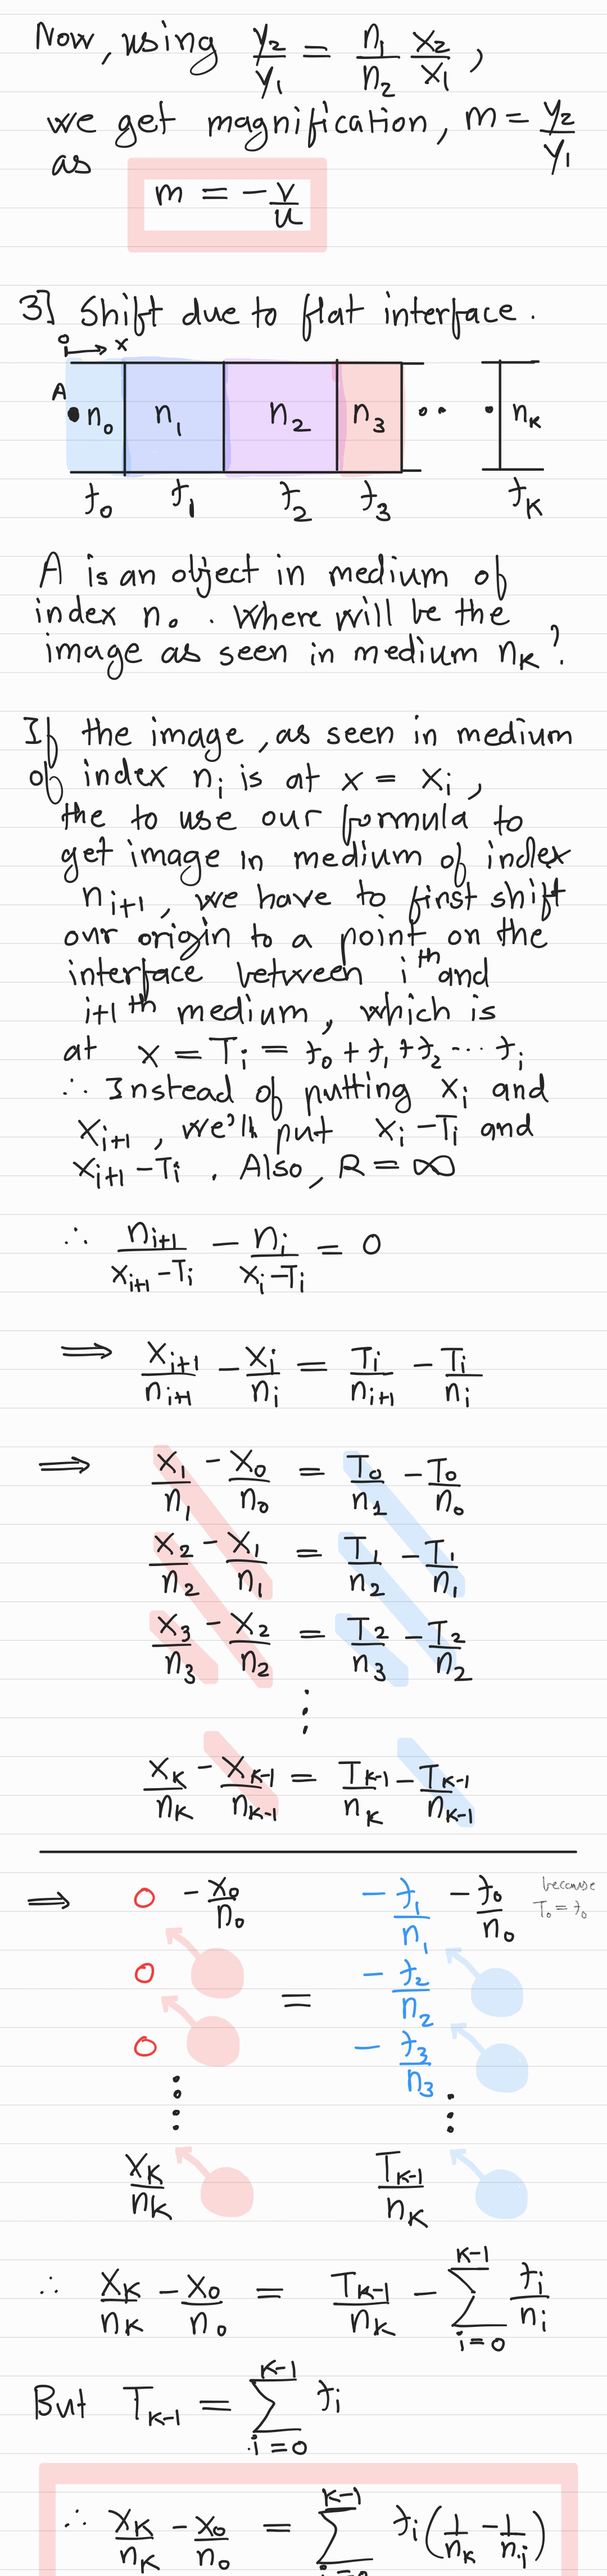 Now, using y₂/y₁ = n₁/n₂ x₂/x₁ ,
we get magnification, m = y₂/y₁
as
m = -v/u
3] Shift due to flat interface.
0 x
A n₀ n₁ n₂ n₃ ... n_K
t₀ t₁ t₂ t₃ t_K
A is an object in medium of
index n₀. Where will be the
image as seen in medium n_K?
If the image, as seen in medium
of index n_i is at x = x_i,
the to use our formula to
get image in medium of index
n_{i+1}, we have to first shift
our origin to a point on the
interface between i^{th} and
i+1^{th} medium, which is
at x = T_i = t₀ + t₁ + t₂ ... t_i
∴ Instead of putting x_i and
x_{i+1}, we'll put x_i - T_i and
x_{i+1} - T_i. Also, R = ∞
∴ n_{i+1}/(x_{i+1} - T_i) - n_i/(x_i - T_i) = 0
⟹ x_{i+1}/n_{i+1} - x_i/n_i = T_i/n_{i+1} - T_i/n_i
⟹ x₁/n₁ - x₀/n₀ = T₀/n₁ - T₀/n₀
x₂/n₂ - x₁/n₁ = T₁/n₂ - T₁/n₁
x₃/n₃ - x₂/n₂ = T₂/n₃ - T₂/n₂
⋮
x_K/n_K - x_{K-1}/n_{K-1} = T_{K-1}/n_K - T_{K-1}/n_{K-1}
⟹ 0 - x₀/n₀ - t₁/n₁ - t₀/n₀ because T₀ = t₀
0 = - t₂/n₂
0 - t₃/n₃
⋮ ⋮
x_K/n_K T_{K-1}/n_K
∴ x_K/n_K - x₀/n₀ = T_{K-1}/n_K - Σ_{i=0}^{K-1} t_i/n_i
But T_{K-1} = Σ_{i=0}^{K-1} t_i
∴ x_K/n_K - x₀/n₀ = Σ_{i=0}^{K-1} t_i (1/n_K - 1/n_i)